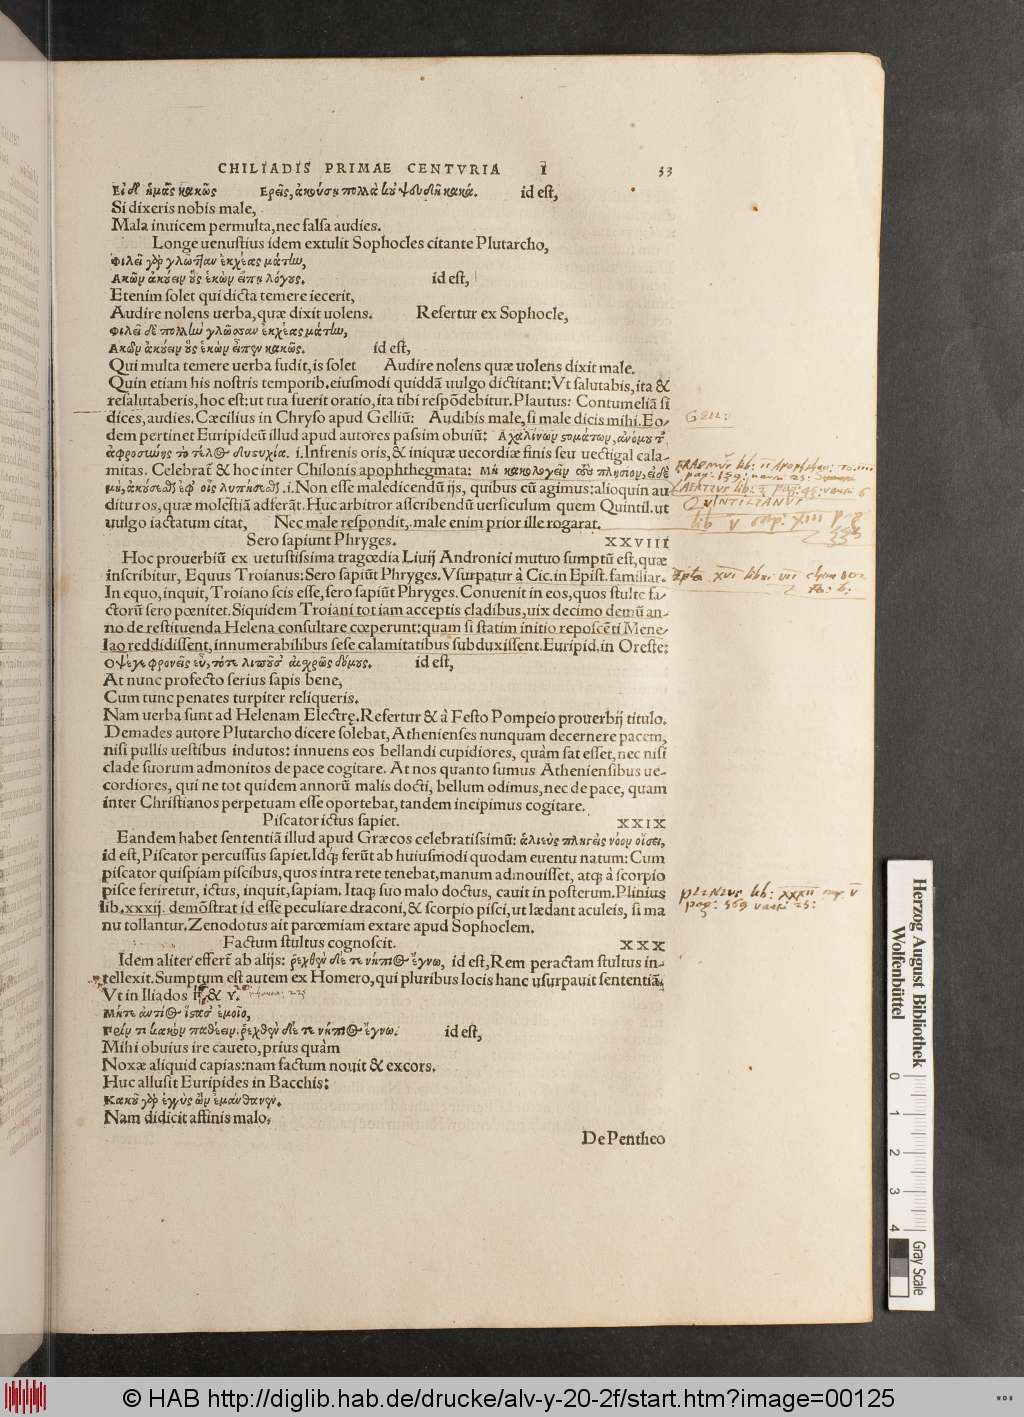 CHILIADIS PRIMAE CENTVRIA I 33
Εἰ δὲ ἡμᾶς κακῶς Ἐρεῖς, ἀκούσῃ πολλὰ κοὐ ψευδῆ κακά. id est,
Si dixeris nobis male,
Mala inuicem permulta, nec falsa audies.
Longe uenustius idem extulit Sophocles citante Plutarcho,
Φιλεῖ γὰρ γλῶτταν ἐκχέας μάτην,
Ακων ἀκούειν οὓς ἑκὼν εἴπῃ λόγους. id est,
Etenim solet qui dicta temere iecerit,
Audire nolens uerba, quæ dixit uolens. Refertur ex Sophocle,
Φιλεῖ δὲ πολλὴν γλῶσσαν ἐκχέας μάτην,
Ακων ἀκούειν οὓς ἑκὼν εἶπεν κακῶς. id est,
Qui multa temere uerba fudit, is solet Audire nolens quæ uolens dixit male.
Quin etiam his nostris temporib. eiusmodi quiddã uulgo dictitant: Vt salutabis, ita &
resalutaberis, hoc est: ut tua fuerit oratio, ita tibi respõdebitur. Plautus: Contumeliã si
dices, audies. Cæcilius in Chryso apud Gelliũ: Audibis male, si male dicis mihi. Eo-
dem pertinet Euripideũ illud apud autores passim obuiũ: Αχαλίνων στομάτων, ἀνόμου τ᾽
ἀφροσύνης τὸ τέλος δυστυχία. i. Infrenis oris, & iniquæ uecordiæ finis seu uectigal cala-
mitas. Celebrat̃ & hoc inter Chilonis apophthegmata: μὴ κακολογεῖν τὸν πλησίον, εἰ δὲ
μὴ, ἀκούσεσθαι ἐφ᾽ οἷς λυπήσεσθαι. i. Non esse maledicendũ ijs, quibus cũ agimus: alioquin au
dituros, quæ molestiã adferãt. Huc arbitror asscribendũ uersiculum quem Quintil. ut
uulgo iactatum citat, Nec male respondit, male enim prior ille rogarat.
Sero sapiunt Phryges. XXVIII
Hoc prouerbiũ ex uetustissima tragœdia Liuij Andronici mutuo sumptũ est, quæ
inscribitur, Equus Troianus: Sero sapiũt Phryges. Vsurpatur à Cic. in Epist. familiar.
In equo, inquit, Troiano scis esse, sero sapiũt Phryges. Conuenit in eos, quos stulte fa-
ctorũ sero pœnitet. Siquidem Troiani tot iam acceptis cladibus, uix decimo demũ an-
no de restituenda Helena consultare cœperunt: quam si statim initio reposcẽti Mene-
lao reddidissent, innumerabilibus sese calamitatibus subduxissent. Euripid. in Oreste:
Οψέ γε φρονεῖς εὖ, τότε λιποῦσ᾽ αἰσχρῶς δόμους. id est,
At nunc profecto serius sapis bene,
Cum tunc penates turpiter reliqueris.
Nam uerba sunt ad Helenam Electrę. Refertur & à Festo Pompeio prouerbij titulo.
Demades autore Plutarcho dicere solebat, Athenienses nunquam decernere pacem,
nisi pullis uestibus indutos: innuens eos bellandi cupidiores, quàm sat esset, nec nisi
clade suorum admonitos de pace cogitare. At nos quanto sumus Atheniensibus ue-
cordiores, qui ne tot quidem annorũ malis docti, bellum odimus, nec de pace, quam
inter Christianos perpetuam esse oportebat, tandem incipimus cogitare.
Piscator ictus sapiet. XXIX
Eandem habet sententiã illud apud Græcos celebratissimũ: ἁλιεὺς πληγεὶς νόον οἴσει,
id est, Piscator percussus sapiet. Idq; ferũt ab huiusmodi quodam euentu natum: Cum
piscator quispiam piscibus, quos intra rete tenebat, manum admouisset, atq; à scorpio
pisce feriretur, ictus, inquit, sapiam. Itaq; suo malo doctus, cauit in posterum. Plinius
lib. xxxij. demõstrat id esse peculiare draconi, & scorpio pisci, ut lædant aculeis, si ma
nu tollantur. Zenodotus ait parœmiam extare apud Sophoclem.
Factum stultus cognoscit. XXX
Idem aliter effert̃ ab alijs: ῥεχθὲν δέ τε νήπιος ἔγνω, id est, Rem peractam stultus in-
tellexit. Sumptum est autem ex Homero, qui pluribus locis hanc usurpauit sententiã.
Vt in Iliados ρ & υ.
Μήτε ἀντίος ἵστασ᾽ ἐμοῖο,
Πρίν τι κακὸν παθέειν. ῥεχθὲν δέ τε νήπιος ἔγνω. id est,
Mihi obuius ire caueto, prius quàm
Noxæ aliquid capias: nam factum nouit & excors.
Huc allusit Euripides in Bacchis:
Κακοῦ γὰρ ἐγγὺς ὢν ἐμάνθανεν.
Nam didicit affinis malo,
De Pentheo
GELL:
ERASMUS lib: II Apophtheg:
pag: 139: 23:
LAERTIUS lib: I pag: 6
QVINTILIANVS
lib V cap: XIII pag
XVI libri VII
PLINIVS lib: XXXII cap: V
pag: 569 25:
Herzog August Bibliothek
Wolfenbüttel
0 1 2 3 4
Gray Scale
© HAB http://diglib.hab.de/drucke/alv-y-20-2f/start.htm?image=00125